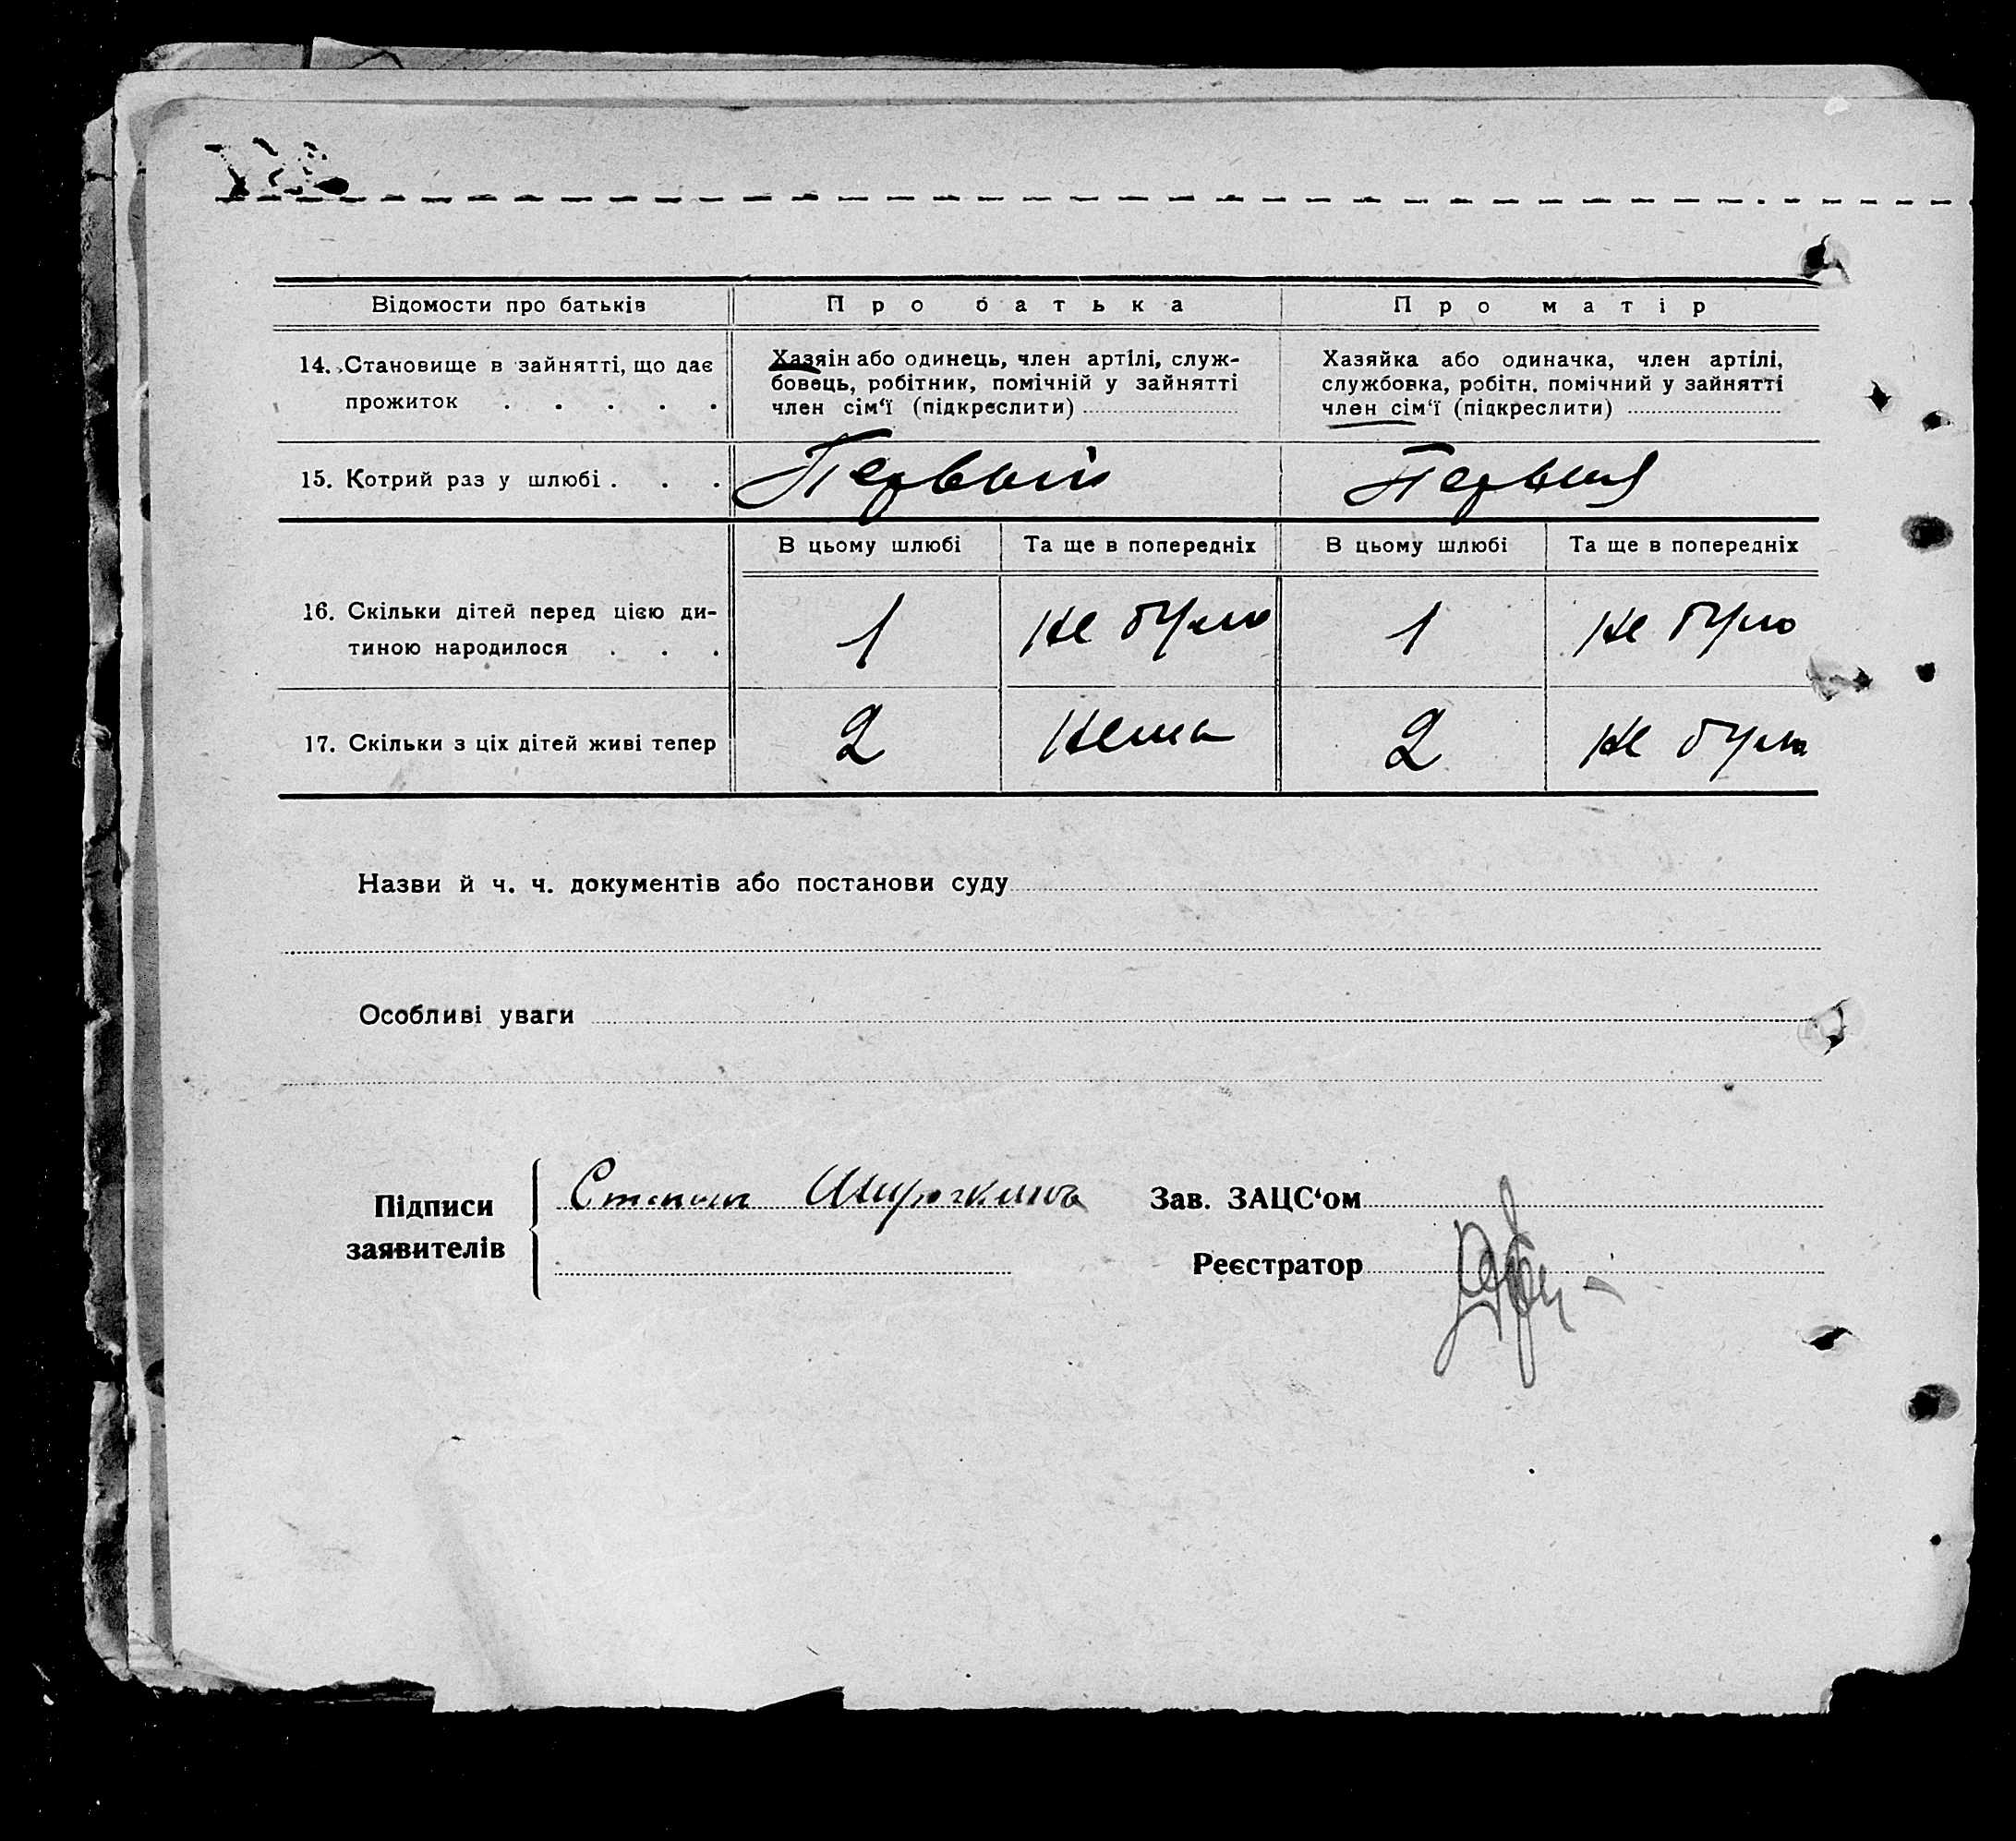 Відомости про батьків
Про батька
Про матір
14. Становище в зайнятті, що дає
прожиток . . . . .
Хазяін або одинець, член артілі, служ-
бовець, робітник, помічній у зайнятті
член сім‘ї (підкреслити)
Хазяйка або одиначка, член артілі,
службовка, робітн. помічний у зайнятті
член сім‘ї (підкреслити)
15. Котрий раз у шлюбі . . .
Первый
Первия
В цьому шлюбі
Та ще в попередніх
В цьому шлюбі
Та ще в попередніх
16. Скільки дітей перед цією ди-
тиною народилося . . .
1
не було
1
не було
17. Скільки з ціх дітей живі тепер
2
нема
2
не було
Назви й ч. ч. документів або постанови суду
Особливі уваги
Підписи
заявителів
Зав. ЗАЦС‘ом
Реєстратор